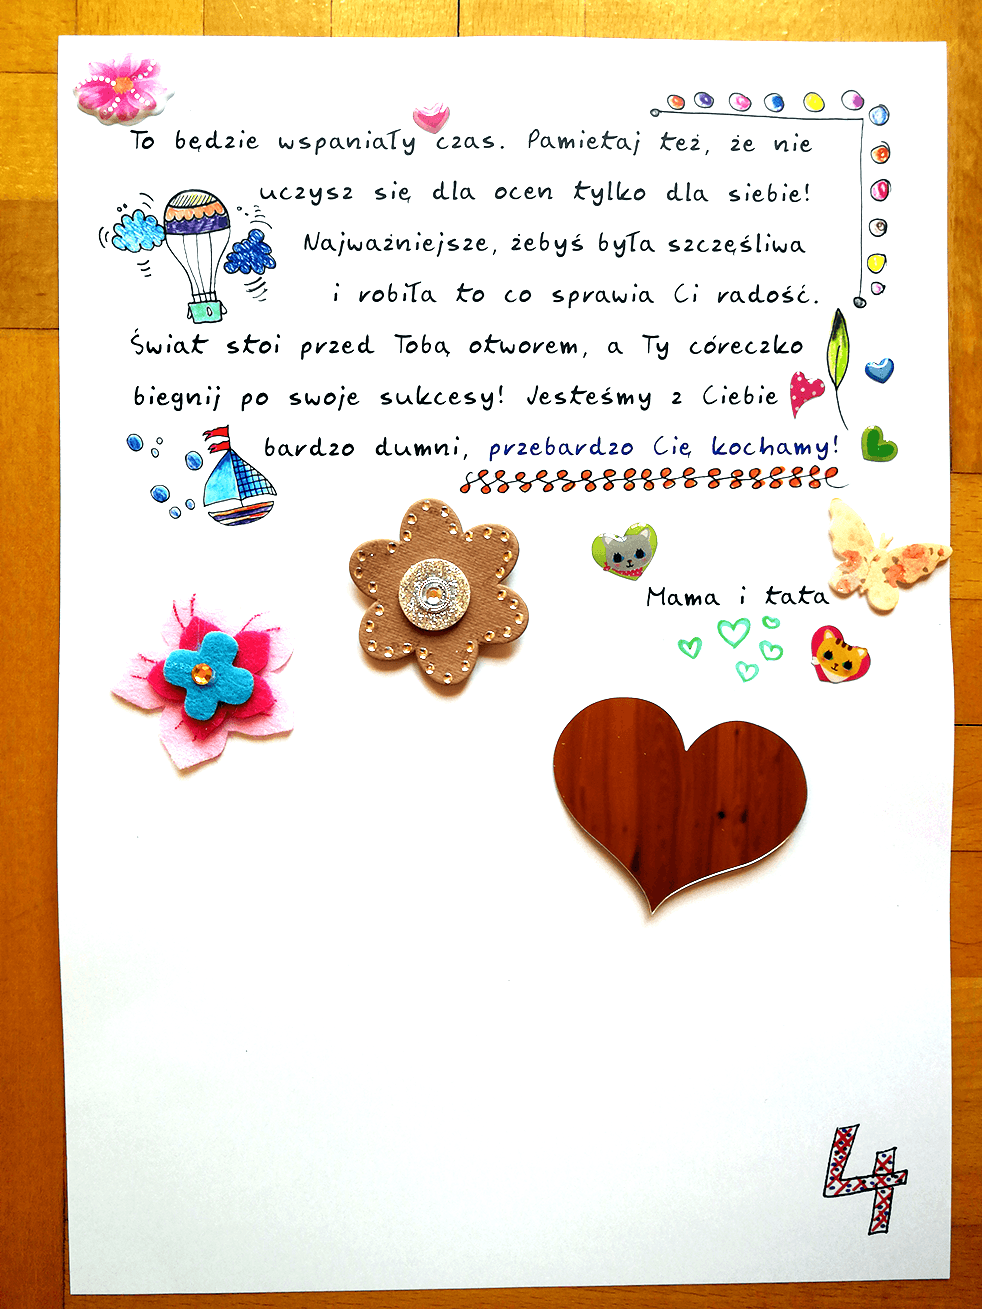 To będzie wspaniały czas. Pamiętaj też, że nie
uczysz się dla ocen tylko dla siebie!
Najważniejsze, żebyś była szczęśliwa
i robiła to co sprawia Ci radość.
Świat stoi przed Tobą otworem, a Ty córeczko
biegnij po swoje sukcesy! Jesteśmy z Ciebie
bardzo dumni, przebardzo Cię kochamy!
Mama i tata
4